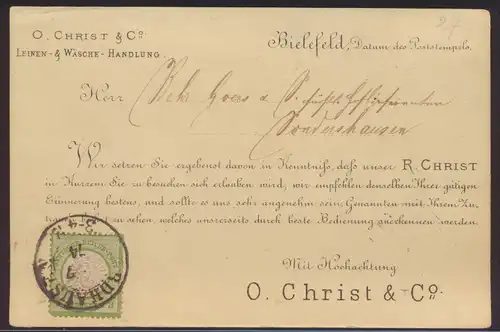 O. CHRIST & Co.
LEINEN-& WÄSCHE-HANDLUNG.
Bielefeld, Datum des Poststempels.
Herr
Sondershausen
Wir setzen Sie ergebenst davon in Kenntniss, dass unser R. CHRIST
in Kurzem Sie zu besuchen sich erlauben wird, wir empfehlen denselben Ihrer gütigen
Erinnerung bestens, und sollte es uns sehr angenehm sein Genannten mit Ihrem Zu-
zu sehen, welches unsrerseits durch beste Bedienung zuerkennen werden.
Mit Hochachtung
O. Christ & Co.